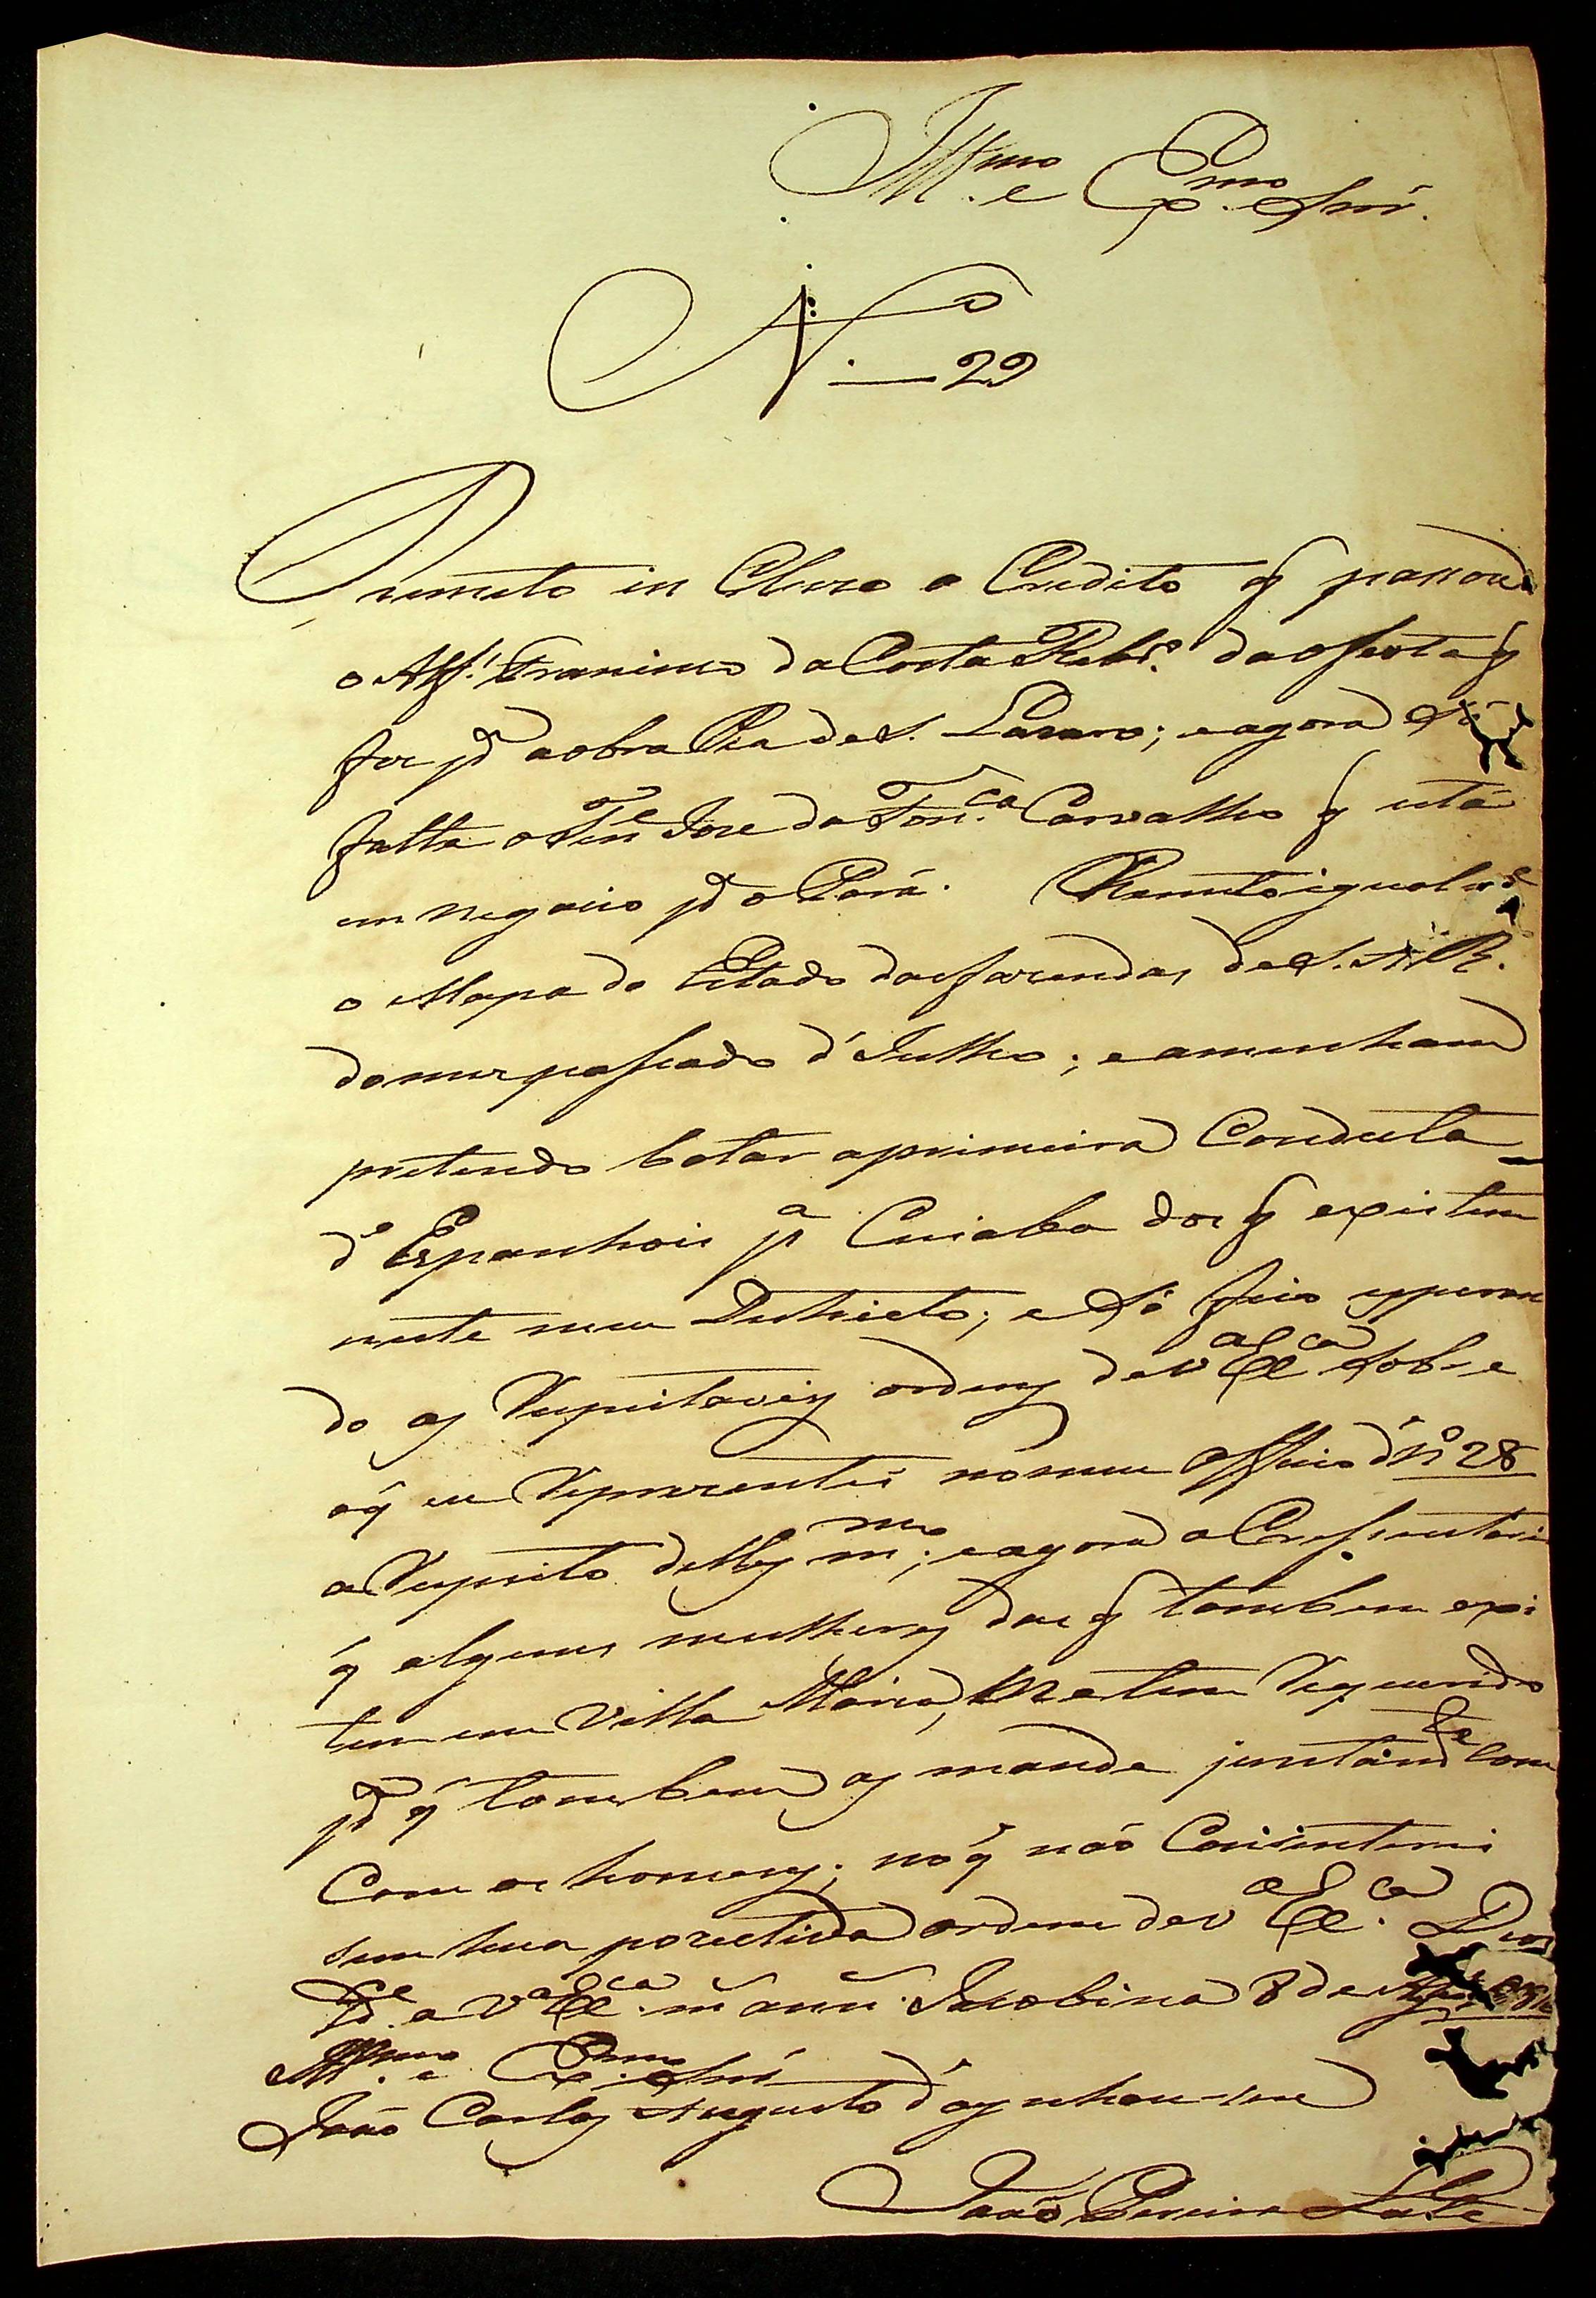 Illmo. e Exmo. Snr.
No. 29
Remeto in Cluzo o Credito q passou
o Alfs. Francisco da Costa Rebo. da oferta q
fes pa aobra Pia de S. Lazaro; e agora só
falta o Tene Jose da Fonca. Carvalho q está
em negocio pa o Pará. Remeto igualmte
o Mapa do Estado das fazendas de S. A. R.
do mez pasado d'Julho; e amenhaam
pretendo botar aprimeira Conducta
d'Espanhois pa Cuiaba dos q existem
neste meu Districto; e só fico esperan
do as Respeitaveis ordens de Va Exca sobre
oq eu Reprezentei nomeu Officio d'No 28
a Respeito delles mmo; e agora a Cresenta
q algumas mulheres das q tambem exis
tem em Villa Maria, me tem Requerido
pa q tambem as mande juntamte com
Com os homens; no q não Consinterei
sem hua pozetiva ordem de Va Exca. Deos
Gde a Va Exca. ms anns. Jacobina 8 de
Illmo. e Exmo. Snr.
João Carlos Augusto d'Oeynhausen
João Pereira Leite